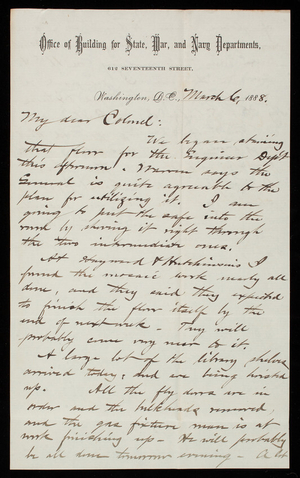 Office of Building for State, War, and Navy Departments,
612 SEVENTEENTH STREET,
Washington, D.C., March 6, 1888.
My dear Colonel:
We began staining
that floor for the Engineer Dep't
this afternoon. Warren says the
General is quite agreeable to the
plan for utilizing it. I am
going to put the safe into the
room by shoving it right through
the two intermediate ones.
At Hayward & Hutchinson's I
found the mosaic work nearly all
done, and they said they expected
to finish the floor itself by the
end of next week. They will
probably even very near to it.
A large lot of the library shelves
arrived today, and are being hoisted
up. All the fly doors are in
order and the bulkheads removed,
and the gas fixture man is at
work finishing up - He will probably
be all done tomorrow evening - A lot